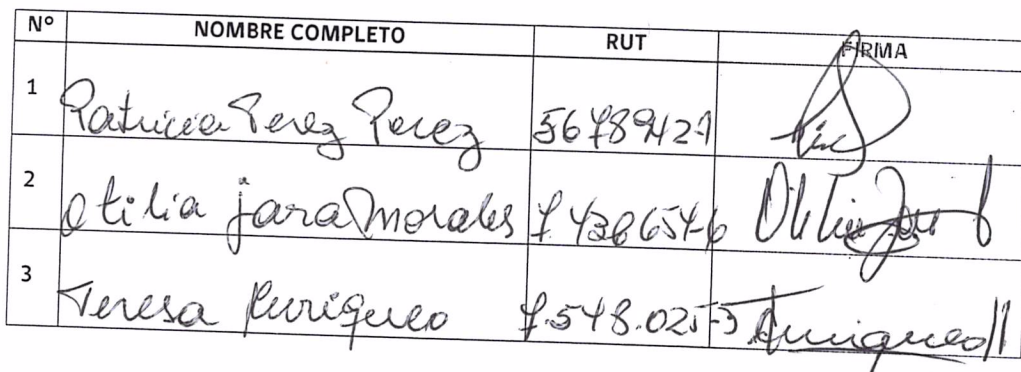 Nº NOMBRE COMPLETO RUT FIRMA
1 Patricia Perez Perez 5678942-1
2 otilia jara morales 7438654-6
3 Teresa 7.548.025-3